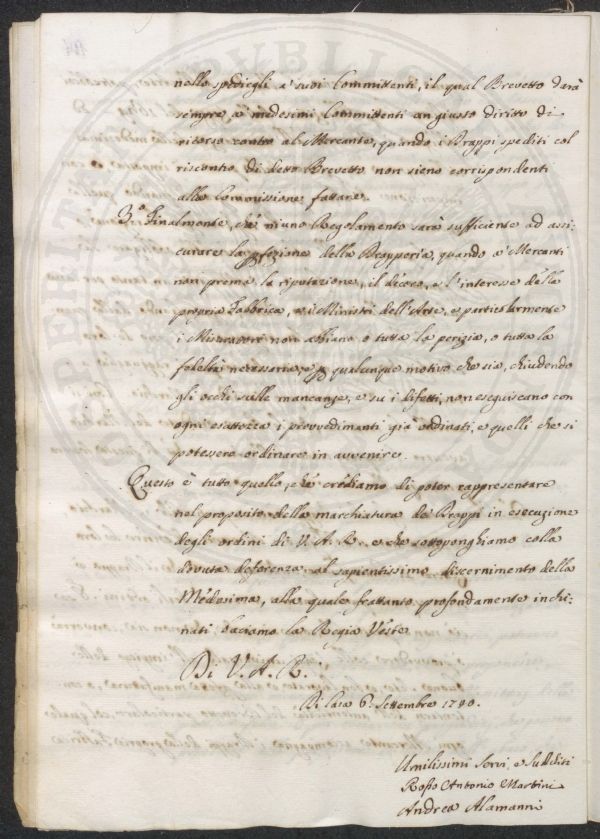 nello spedirgli a' suoi Committenti, il qual Brevetto darà
sempre a' medesimi Committenti un giusto diritto di
ricorso contro al Mercante, quando i Drappi spediti col
riscontro di detto Brevetto non sieno corrispondenti
alla Commissione fattane.
3.° Finalmente, che niuno Regolamento sarà sufficiente ad assi-
curare la pfezione della Drapperia, quando a' Mercanti
non prema la riputazione, il decoro, e l'interesse della
propria Fabbrica, e i Ministri dell'Arte, e particolarmente
i Misuratori non abbiano o tutta la perizia, o tutta la
fedeltà necessaria, e p qualunque motivo che sia, chiudendo
gli occhi sulle mancanze, e su i difetti, non eseguiscano con
ogni esattezza i provvedimenti già ordinati, e quelli che si
potessero ordinare in avvenire.
Questo è tutto quello, che crediamo di poter rappresentare
nel proposito della marchiatura dei Drappi in esecuzione
degli ordini di V. A. R. e che sottoponghiamo colla
dovuta deferenza al sapientissimo discernimento della
Medesima, alla quale frattanto profondamente inchi-
nati baciamo la Regia Veste
Di V. A. R.
Di Casa 6. Settembre 1780.
Umilissimi Servi, e Sudditi
Antonio Martini
Andrea Alamanni